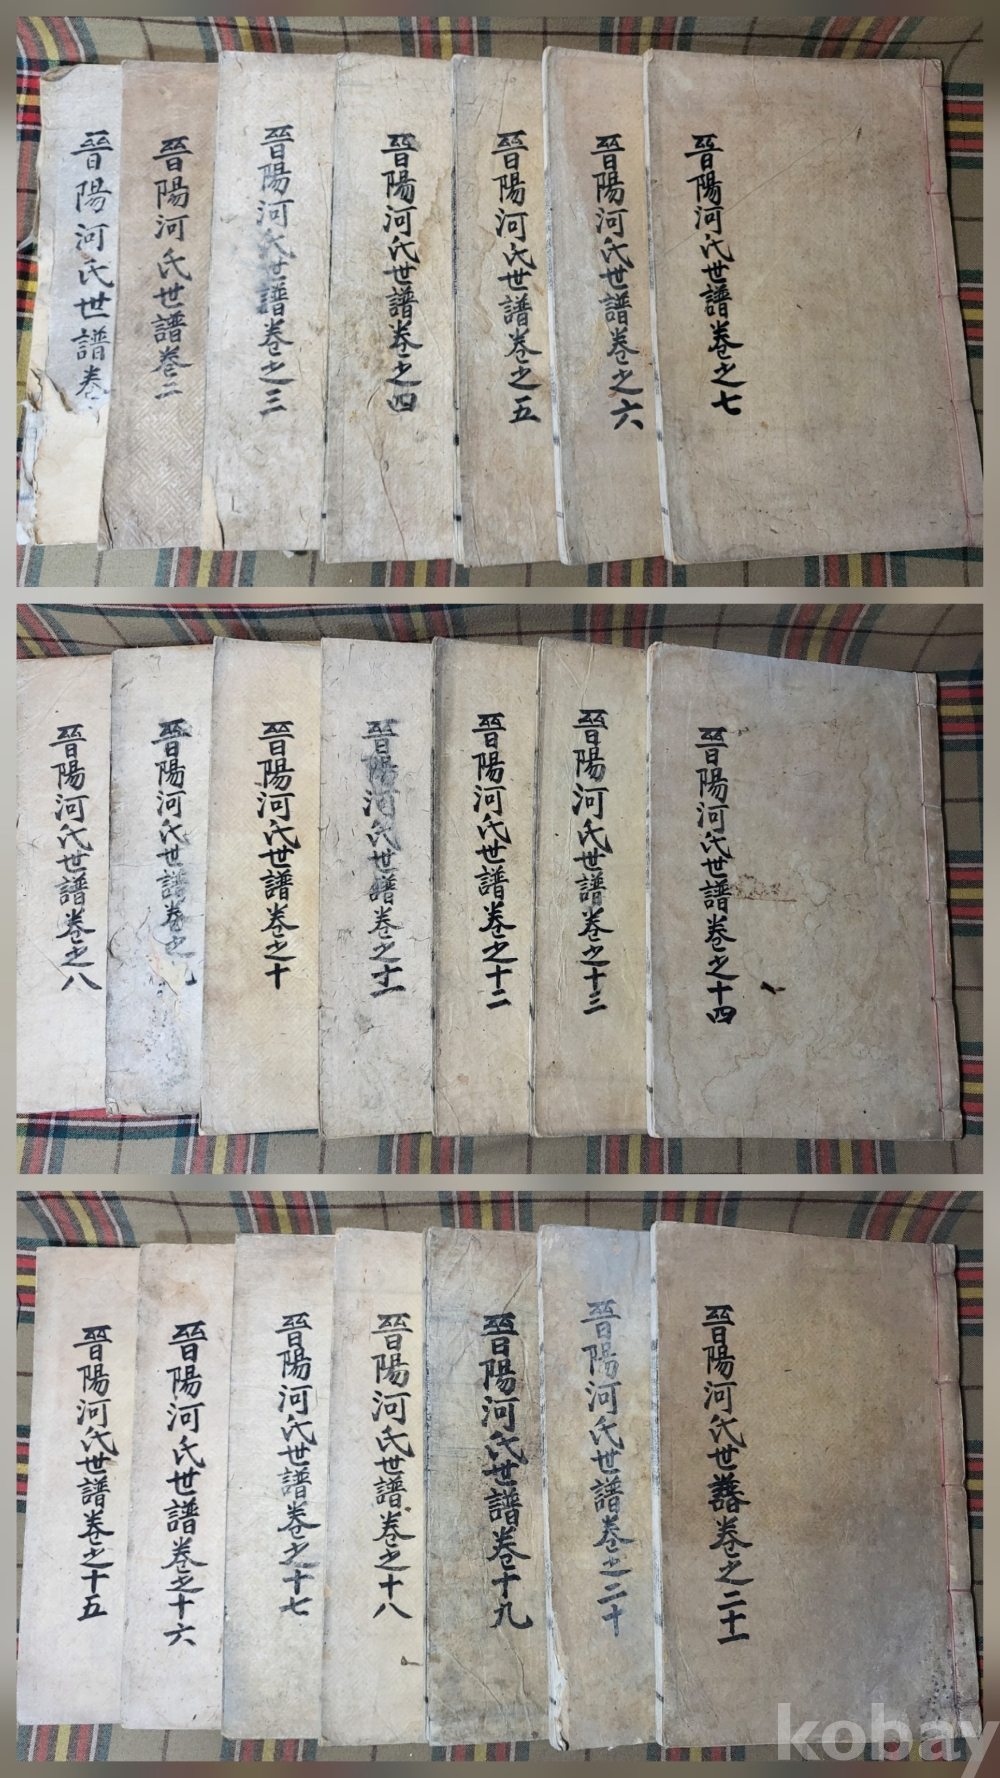 晉陽河氏世譜卷
晉陽河氏世譜卷二
晉陽河氏世譜卷之三
晉陽河氏世譜卷之四
晉陽河氏世譜卷之五
晉陽河氏世譜卷之六
晉陽河氏世譜卷之七
晉陽河氏世譜卷之八
晉陽河氏世譜卷之九
晉陽河氏世譜卷之十
晉陽河氏世譜卷之十一
晉陽河氏世譜卷之十二
晉陽河氏世譜卷之十三
晉陽河氏世譜卷之十四
晉陽河氏世譜卷之十五
晉陽河氏世譜卷之十六
晉陽河氏世譜卷之十七
晉陽河氏世譜卷之十八
晉陽河氏世譜卷十九
晉陽河氏世譜卷之二十
晉陽河氏世譜卷之二十一
kobay